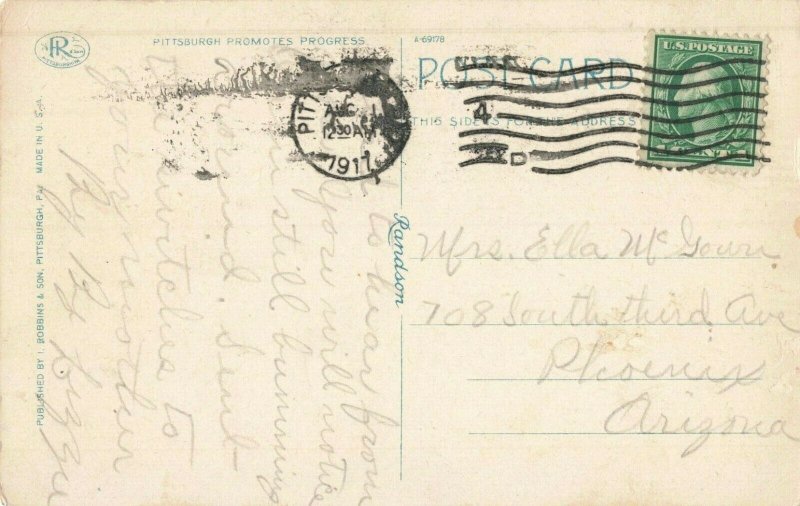 PITTSBURGH PROMOTES PROGRESS
A-69178
POST CARD
THIS SIDE IS FOR THE ADDRESS
U.S. POSTAGE
1 CENT 1
PITT
AUG 1
12 30 AM
1917
4
D
R
PITTSBURGH
MADE IN U. S. A.
PUBLISHED BY I. ROBBINS & SON, PITTSBURGH, PA.
Randson
Mrs. Ella McGown
708 South third Ave
Phoenix
Arizona
to hear from
you will notice
still bumming
around. Sent
switches to
your mother
By By Lizzie